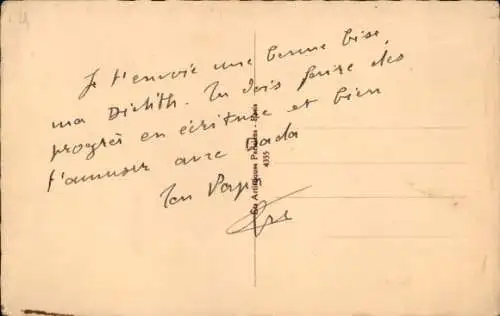 Je t'envoie une bonne bise,
ma Didith. Tu dois faire des
progrès en écriture et bien
t'amuser avec Dada
Ton Papa
4355